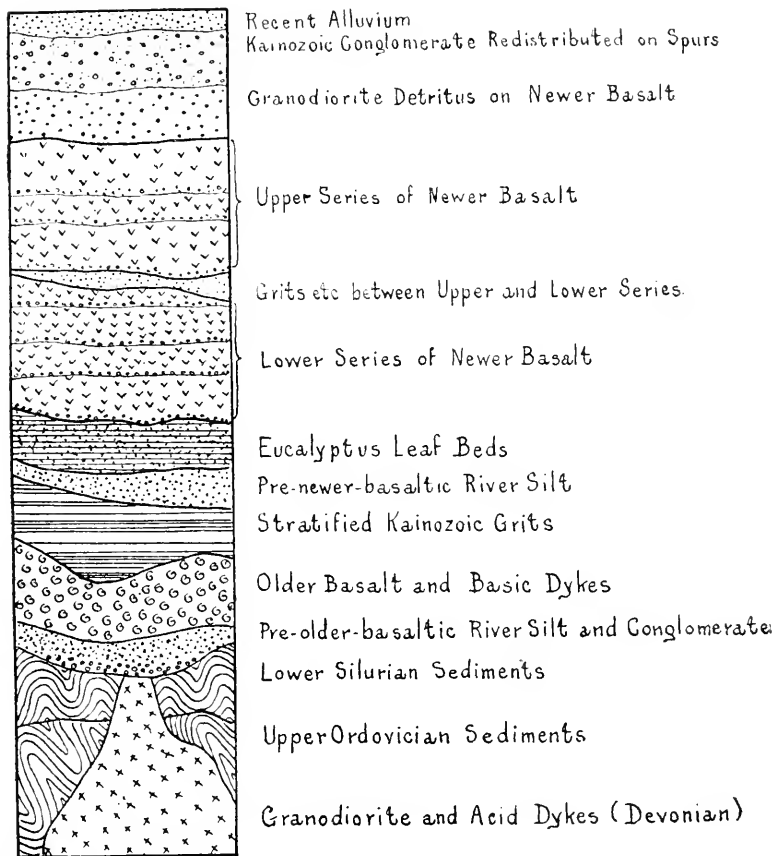 Recent Alluvium
Kainozoic Conglomerate Redistributed on Spurs
Granodiorite Detritus on Newer Basalt
Upper Series of Newer Basalt
Grits etc between Upper and Lower Series.
Lower Series of Newer Basalt
Eucalyptus Leaf Beds
Pre-newer-basaltic River Silt
Stratified Kainozoic Grits
Older Basalt and Basic Dykes
Pre-older-basaltic River Silt and Conglomerate
Lower Silurian Sediments
Upper Ordovician Sediments
Granodiorite and Acid Dykes (Devonian)